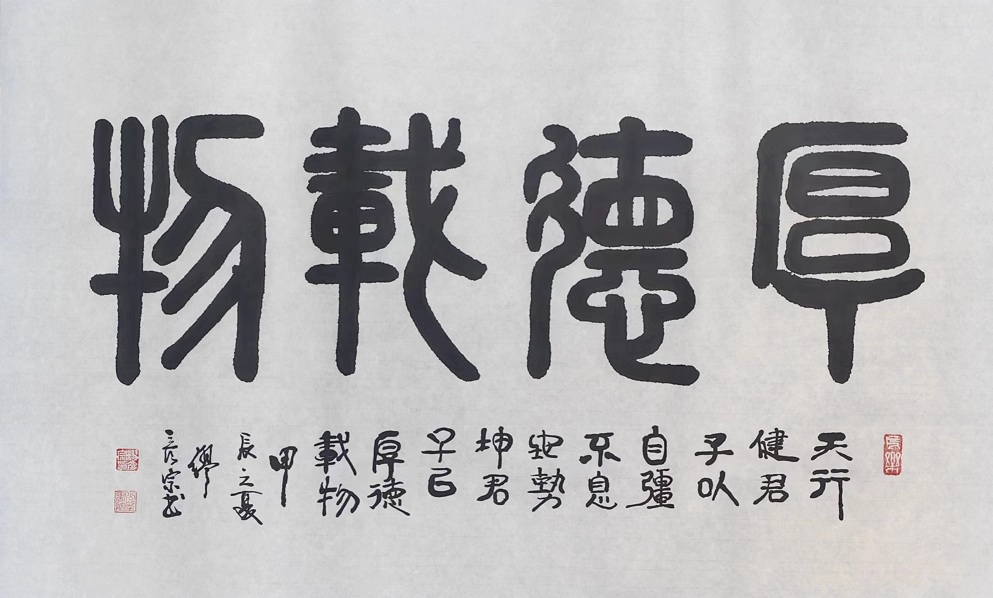 厚德載物
天行
健君
子以
自彊
不息
地勢
坤君
子㠯
厚德
載物
甲
辰之夏